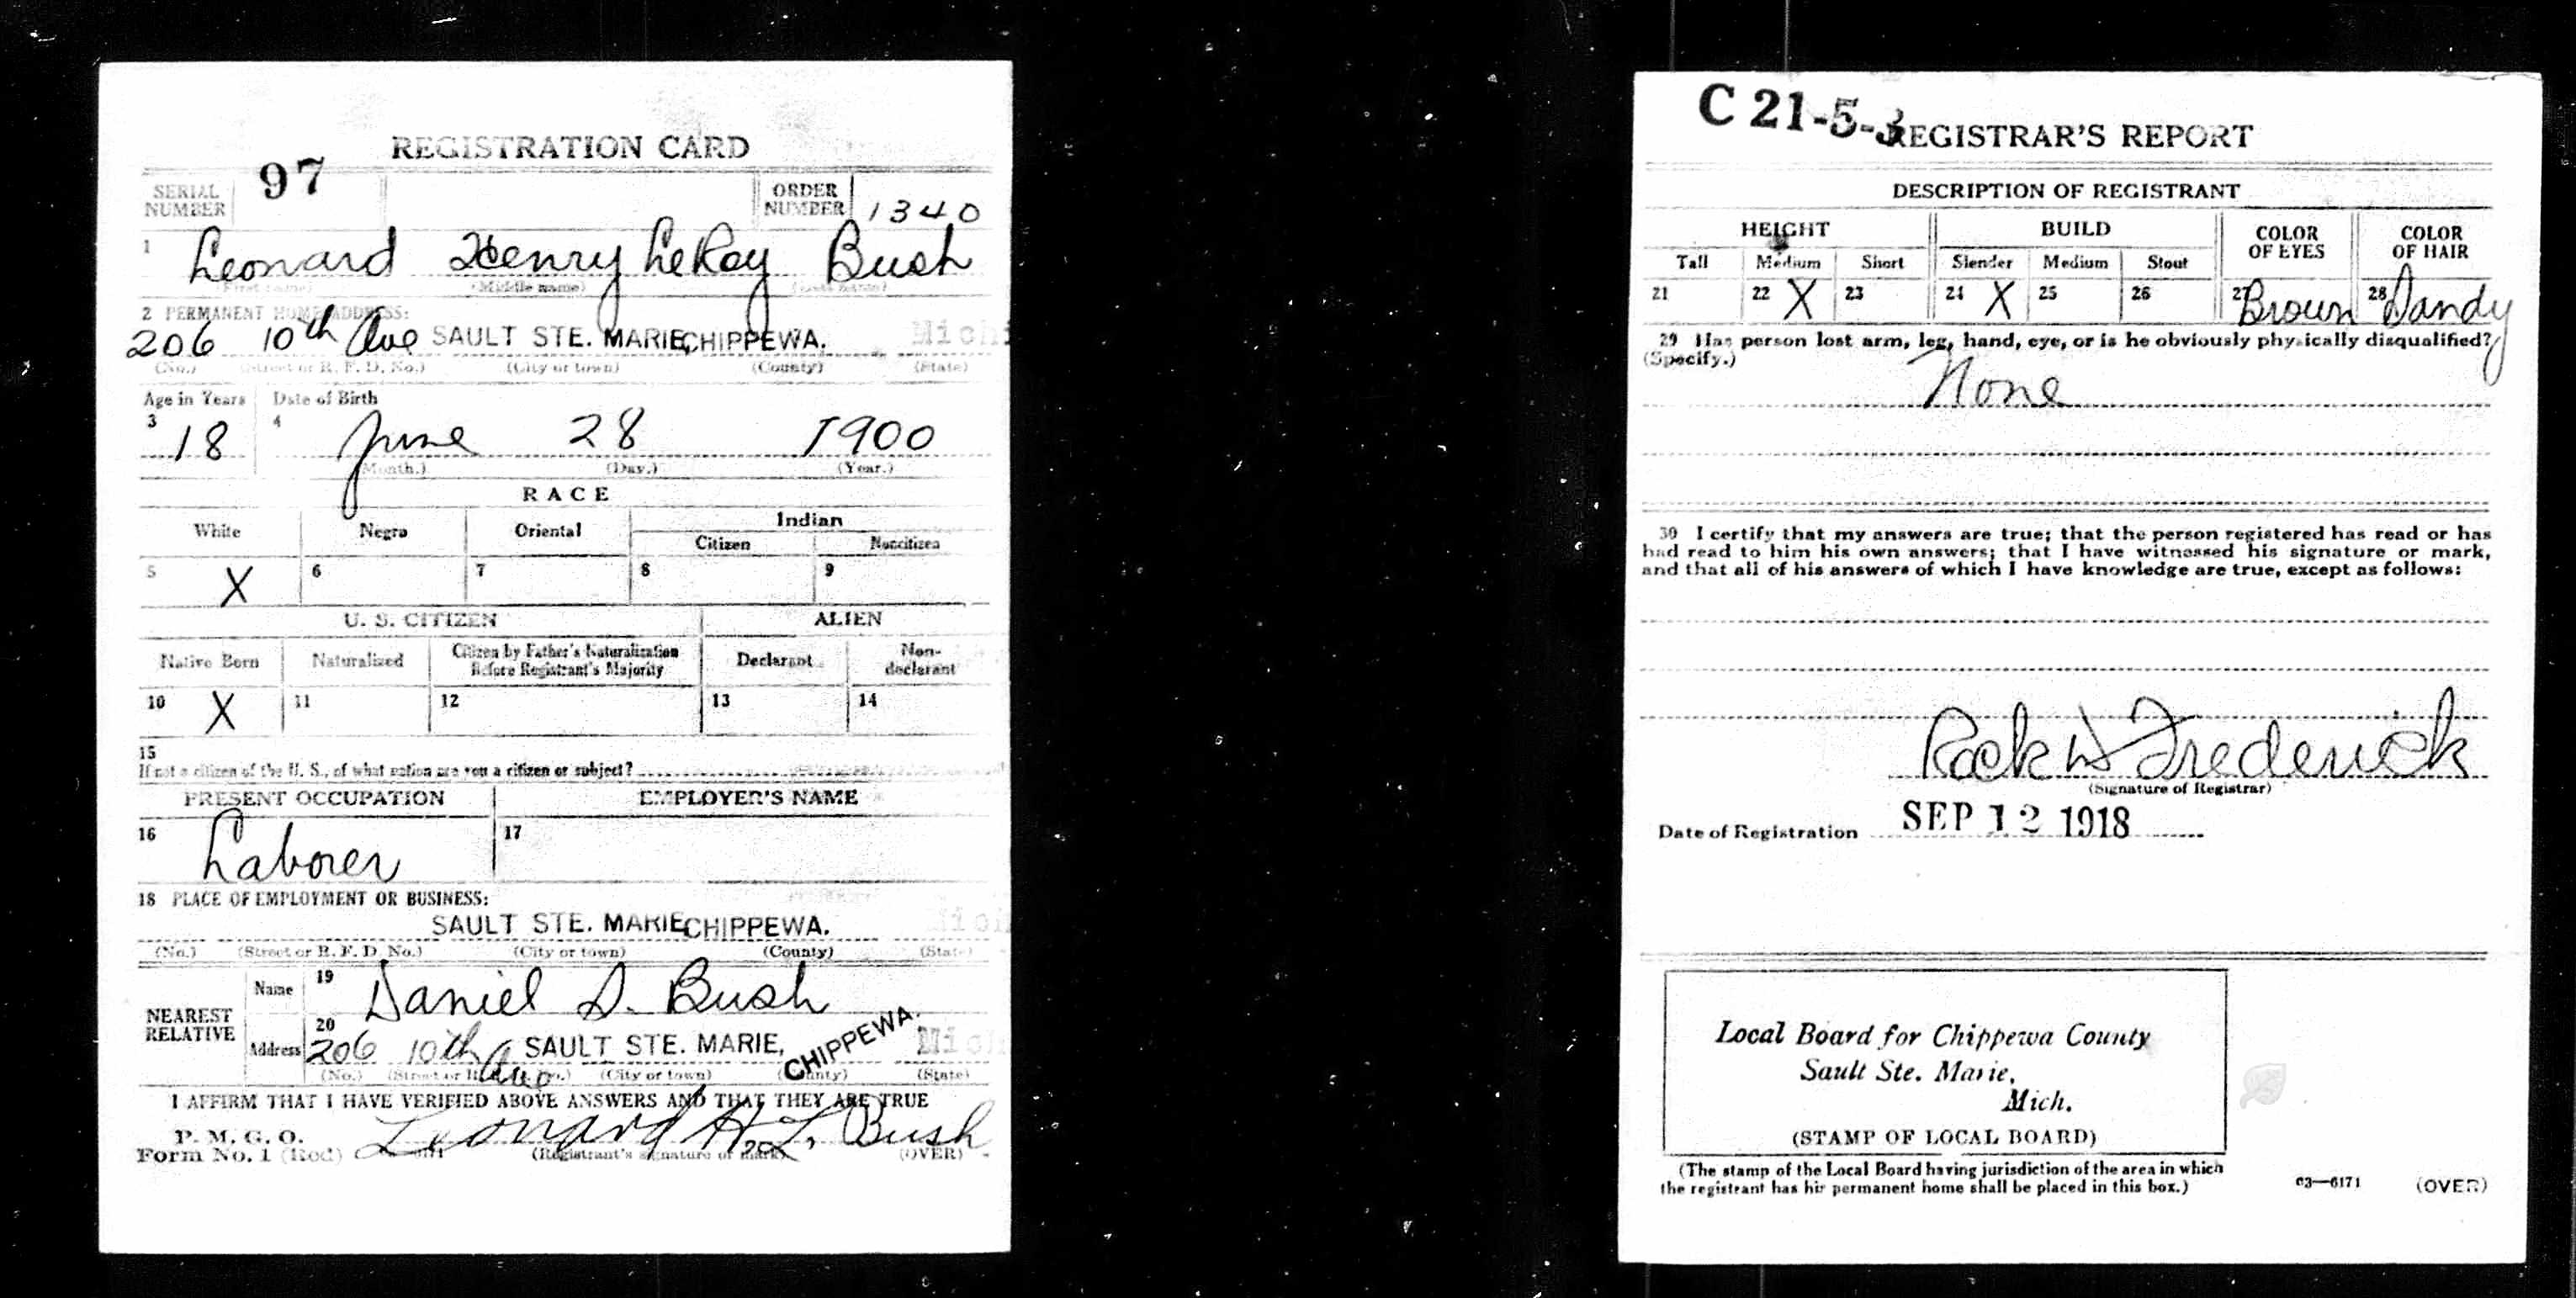 REGISTRATION CARD
SERIAL NUMBER 97 ORDER NUMBER 1340
1 Leonard Henry LeRoy Bush
(First name) (Middle name) (Last name)
2 PERMANENT HOME ADDRESS:
206 10th Ave SAULT STE. MARIE, CHIPPEWA. Michi
(No.) (Street or R. F. D. No.) (City or town) (County) (State)
Age in Years Date of Birth
3 18 4 June 28 1900
(Month.) (Day.) (Year.)
RACE
White Negro Oriental Indian
Citizen Noncitizen
5 X 6 7 8 9
U. S. CITIZEN ALIEN
Native Born Naturalized Citizen by Father's Naturalization Before Registrant's Majority Declarant Non-declarant
10 X 11 12 13 14
15
If not a citizen of the U. S., of what nation are you a citizen or subject?
PRESENT OCCUPATION EMPLOYER'S NAME
16 Laborer 17
18 PLACE OF EMPLOYMENT OR BUSINESS:
SAULT STE. MARIE, CHIPPEWA.
(No.) (Street or R. F. D. No.) (City or town) (County) (State)
NEAREST RELATIVE
Name 19 Daniel D. Bush
Address 20 206 10th Ave SAULT STE. MARIE, CHIPPEWA. Mich
(No.) (Street or R. F. D. No.) (City or town) (County) (State)
I AFFIRM THAT I HAVE VERIFIED ABOVE ANSWERS AND THAT THEY ARE TRUE
P. M. G. O.
Form No. 1 (Red) Leonard H. L. Bush
(Registrant's signature or mark) (OVER)
C 21-5-3 REGISTRAR'S REPORT
DESCRIPTION OF REGISTRANT
HEIGHT BUILD COLOR OF EYES COLOR OF HAIR
Tall Medium Short Slender Medium Stout
21 22 X 23 24 X 25 26 27 Brown 28 Sandy
29 Has person lost arm, leg, hand, eye, or is he obviously physically disqualified?
(Specify.)
None
30 I certify that my answers are true; that the person registered has read or has
had read to him his own answers; that I have witnessed his signature or mark,
and that all of his answers of which I have knowledge are true, except as follows:
Frederick
(Signature of Registrar)
Date of Registration SEP 12 1918
Local Board for Chippewa County
Sault Ste. Marie,
Mich.
(STAMP OF LOCAL BOARD)
(The stamp of the Local Board having jurisdiction of the area in which
the registrant has his permanent home shall be placed in this box.)
03—6171 (OVER)